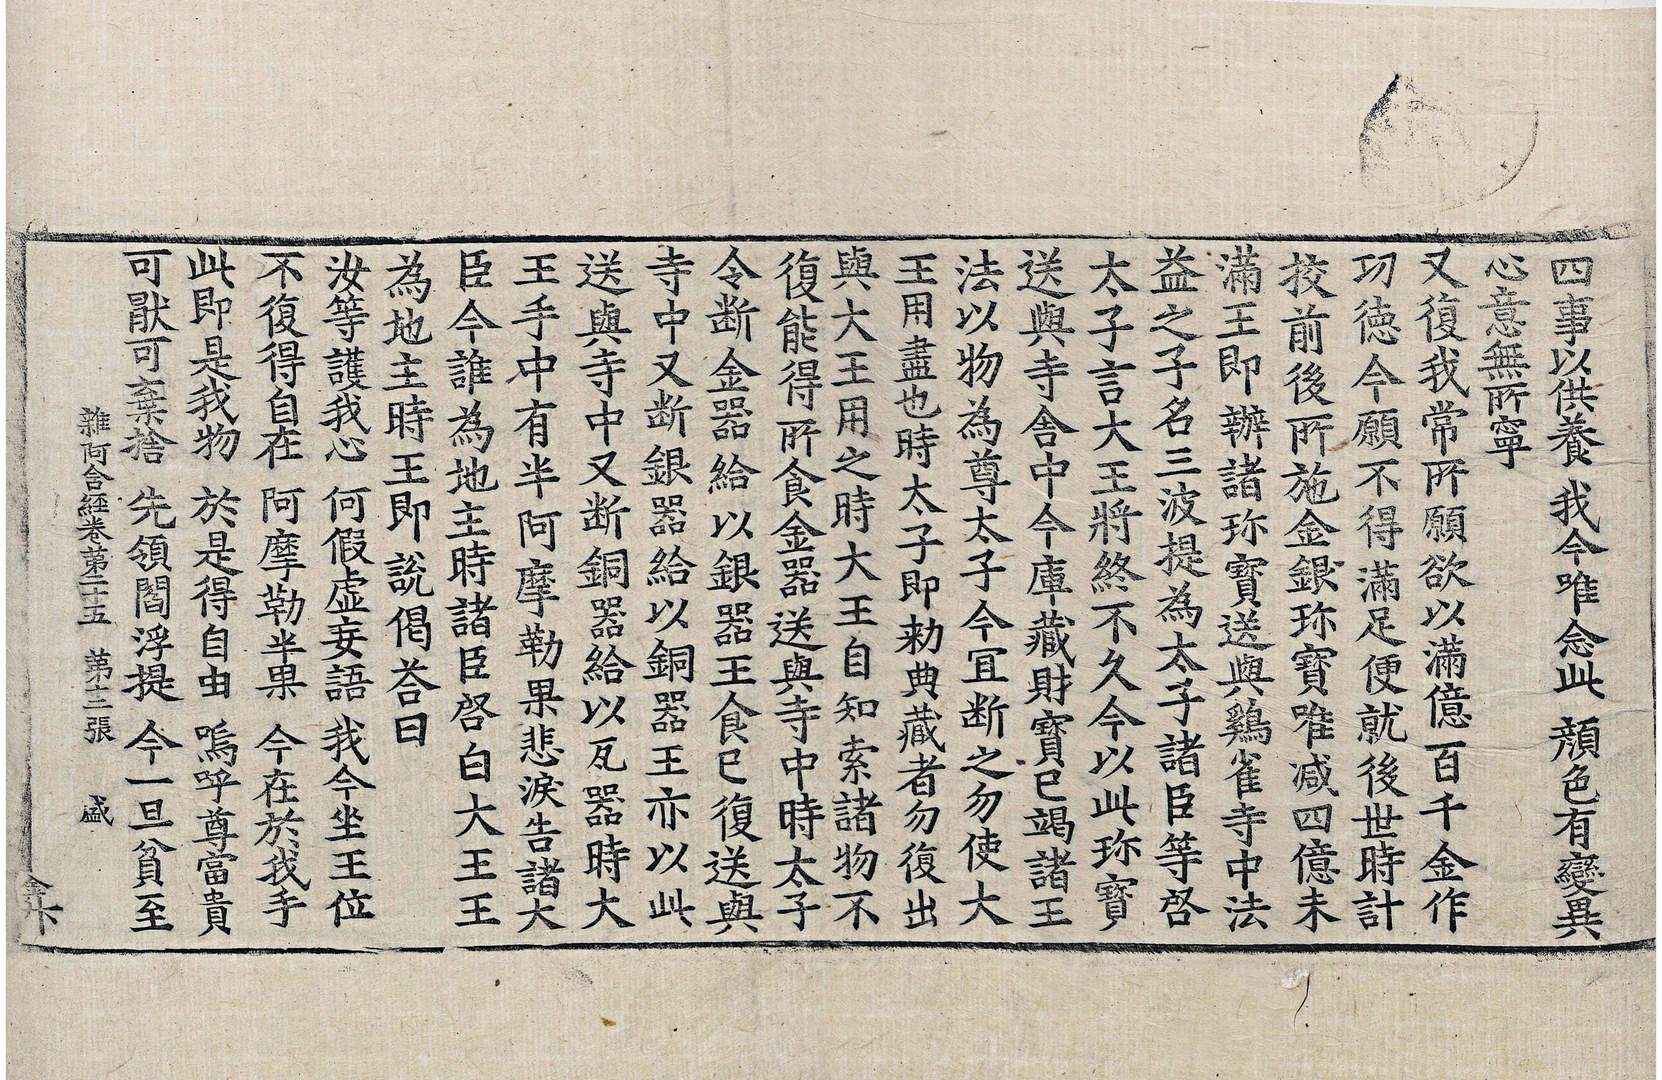 四事以供養 我今唯念此 顔色有變異
心意無所寧
又復我常所願欲以滿億百千金作
功徳今願不得滿足便就後世時計
挍前後所施金銀珎寳唯减四億未
滿王即辦諸珎寳送與鷄雀寺中法
益之子名三波提為太子諸臣等啓
太子言大王將終不久今以此珎寳
送與寺舍中今庫藏財寳已竭諸王
法以物為尊太子今冝断之勿使大
王用盡也時太子即勑典藏者勿復出
與大王用之時大王自知索諸物不
復能得所食金器送與寺中時太子
令断金器給以銀器王食已復送與
寺中又断銀器給以銅器王亦以此
送與寺中又断銅器給以瓦器時大
王手中有半阿摩勒果悲淚告諸大
臣今誰為地主時諸臣啓白大王王
為地主時王即說偈荅曰
汝等護我心 何假虛妄語 我今坐王位
不復得自在 阿摩勒半果 今在於我手
此即是我物 於是得自由 嗚呼尊當貴
可猒可棄捨 先領閻浮提 今一旦貧至
雜阿含經卷第二十五 第十二張 盛